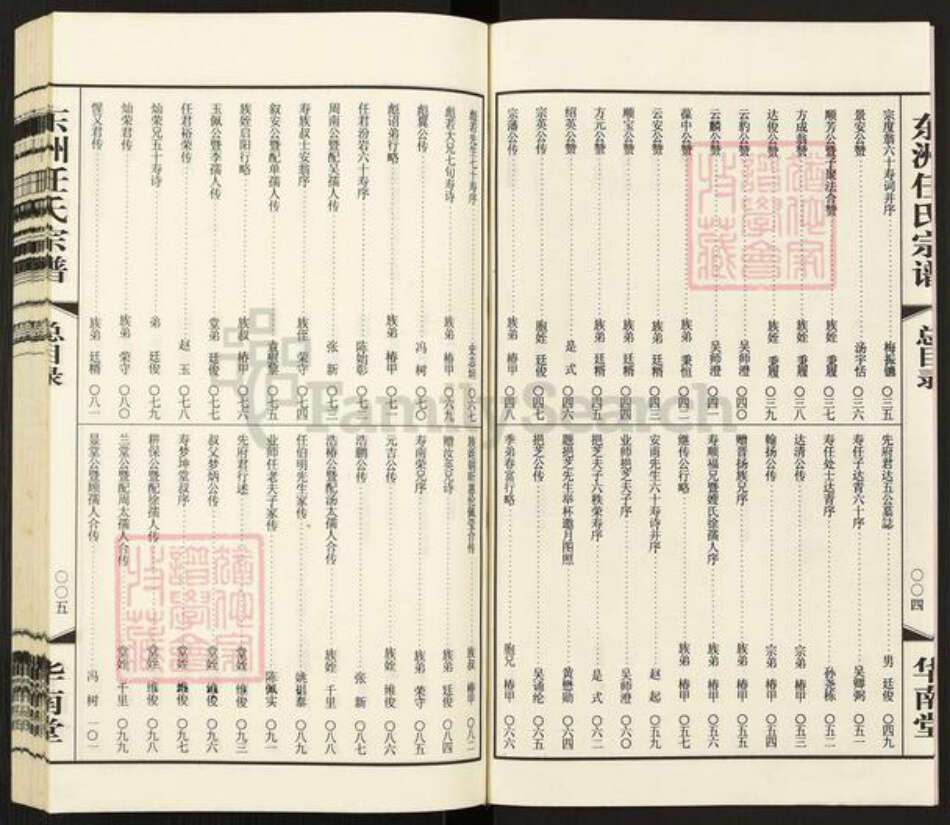 东洲任氏宗谱
总目录
〇〇四
华南堂
宗度翁六十寿词并序 梅振儀 〇三五
景安公赞 汤宗恬 〇三六
顺芳公暨子聚法合赞 族姪 秉履 〇三七
方成翁赞 族姪 秉履 〇三八
达俊公赞 族姪 秉履 〇三九
云豹公赞 吴师澄 〇四〇
云麟公赞 吴师澄 〇四一
葆中公赞 族弟 秉恒
云安公赞 族弟 廷楷
顺宝公赞 族弟 廷楷 〇四四
方元公赞 族弟 廷楷 〇四五
绍英公赞 是式 〇四六
宗英公传 胞姪 廷俊 〇四七
宗潘公传 族弟 椿甲 〇四八
先府君达五公墓誌 男 廷俊 〇四九
寿任子达菁六十序 吴卿弼 〇五一
寿任处士达菁序 孙尧栋 〇五二
达清公传 宗弟 椿甲 〇五三
翰扬公传 宗弟 椿甲 〇五四
赠普扬族兄序 族弟 椿甲 〇五五
寿顺福兄暨嫂氏徐孺人序 族弟 椿甲 〇五六
继传公行略 族弟 椿甲 〇五七
安甫先生六十寿诗并序 赵起 〇五九
业师挹芝夫子序 吴师澄 〇六〇
挹芝夫子六秩荣寿序 是式 〇六二
题挹芝先生举杯邀月图照 黄懋勋 〇六四
挹芝公传 吴诵纶 〇六五
季弟春富行略 胞兄 椿甲 〇六六
彪若先生七十寿序 〇六七
彪若大兄七旬寿诗 族弟 椿甲 〇六九
彪翼公传 冯树 〇七〇
彪诏弟行略 族弟 椿甲 〇七一
任君汾岩六十寿序 陈娟彰
周南公暨配吴孺人传 张新 〇七三
寿族叔士安翁序 族侄 荣守 〇七四
叙安公暨配单孺人传 〇七五
族姪启阳行略 族叔 椿甲 〇七六
玉佩公暨李孺人传 堂弟 廷俊 〇七七
任君裕荣传 赵玉 〇七八
灿荣兄五十寿诗 弟 廷俊 〇七九
灿荣君传 族弟 荣守 〇八〇
惺义君传 族弟 廷楷 〇八一
族叔 椿甲 〇八二
赠汝英兄诗 族弟 廷俊 〇八四
寿南荣兄序 族弟 荣守 〇八五
元吉公传 族姪 维俊 〇八六
浩鹏公传 张新 〇八七
浩椿公暨配汤太孺人合传 族姪 千里 〇八八
任伯明先生家传 〇八九
业师任老夫子家传 陈佩实 〇九一
先府君行述 堂姪 维俊 〇九三
叔父梦炳公传 堂姪 维俊 〇九六
寿梦坤堂叔序 堂姪 维俊 〇九七
耕保公暨配徐孺人传 堂姪 维俊 〇九八
兰堂公暨配周太孺人合传 堂姪 千里 〇九九
景堂公暨配顾孺人合传 冯树 一〇一
东洲任氏宗谱
总目录
〇〇五
华南堂
FamilySearch